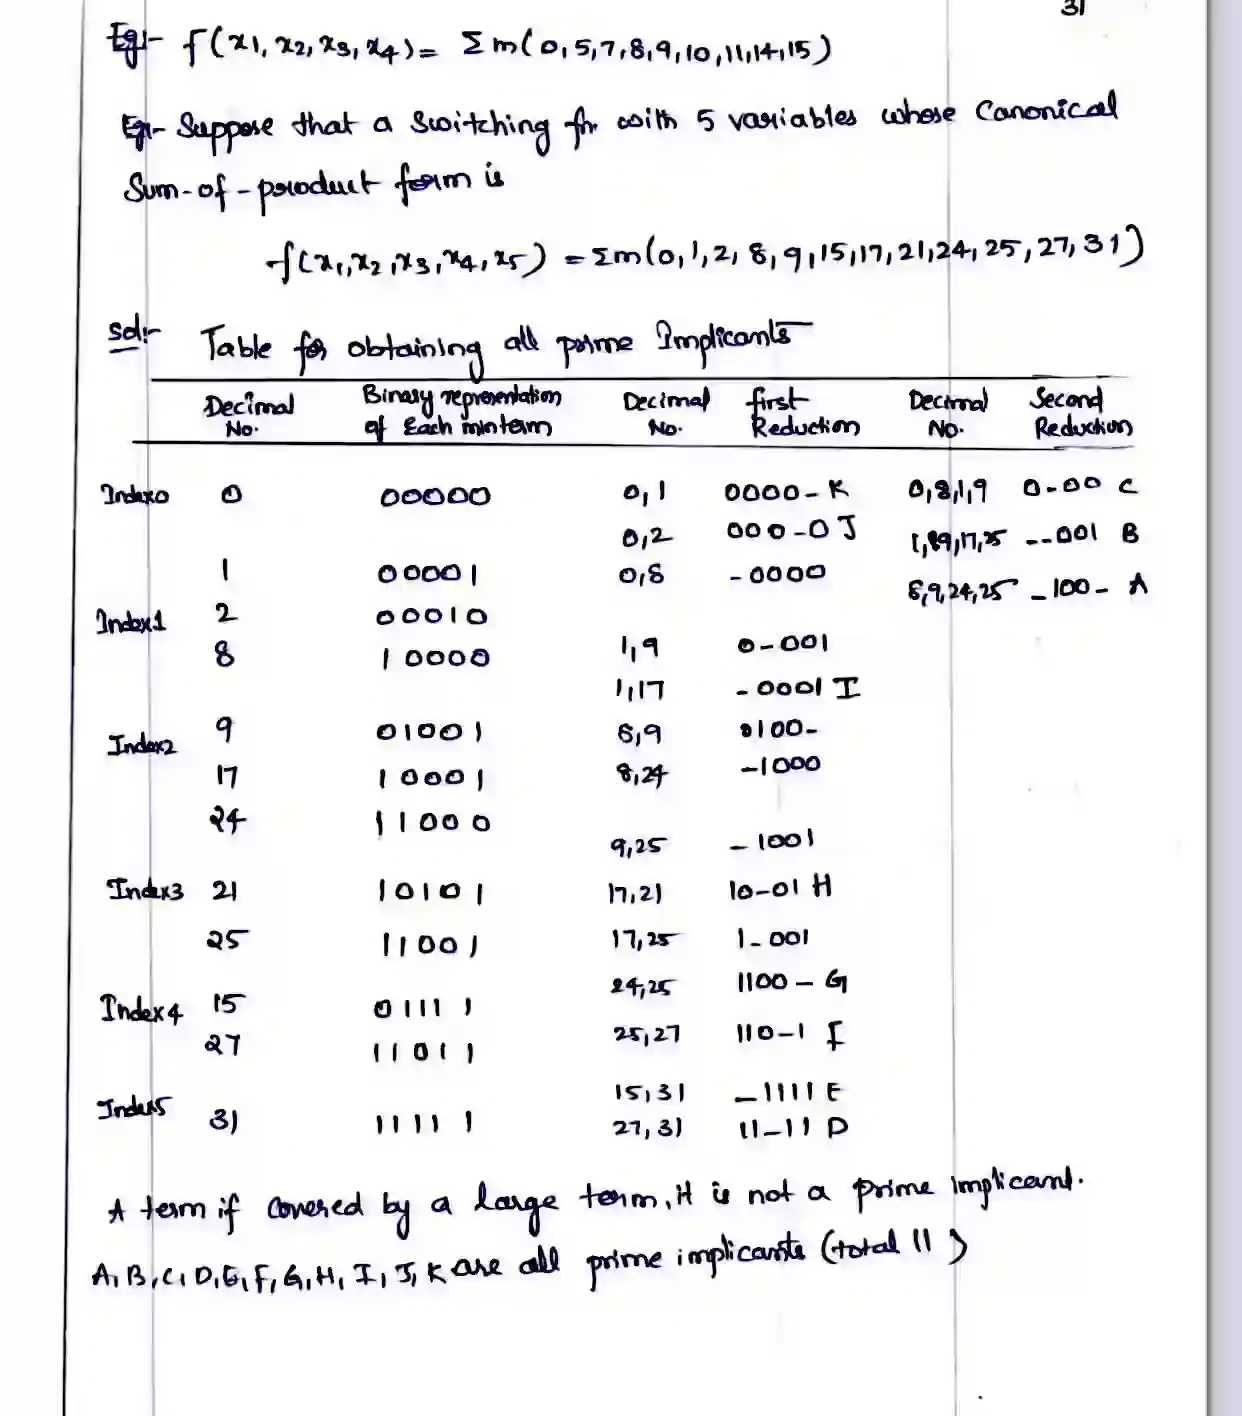 31
Eg:- f(x1, x2, x3, x4) = Σm(0,5,7,8,9,10,11,14,15)
Eg:- Suppose that a Switching fn. with 5 variables whose Canonical
Sum-of-product form is
f(x1, x2, x3, x4, x5) = Σm(0,1,2,8,9,15,17,21,24,25,27,31)
Sol:- Table for obtaining all prime Implicants
Decimal No. Binary representation of Each minterm Decimal No. first Reduction Decimal No. Second Reduction
Index0 0 00000 0,1 0000- K 0,8,1,9 0-00 C
0,2 000-0 J 1,89,17,25 --001 B
1 00001 0,8 -0000 8,9,24,25 -100- A
Index1 2 00010
8 10000 1,9 0-001
1,17 -0001 I
Index2 9 01001 8,9 0100-
17 10001 8,24 -1000
24 11000
9,25 -1001
Index3 21 10101 17,21 10-01 H
25 11001 17,25 1-001
24,25 1100- G
Index4 15 01111
27 11011 25,27 110-1 F
Index5 15,31 -1111 E
31 11111 27,31 11-11 D
A term if covered by a large term, it is not a prime implicant.
A, B, C, D, E, F, G, H, I, J, K are all prime implicants (total 11)